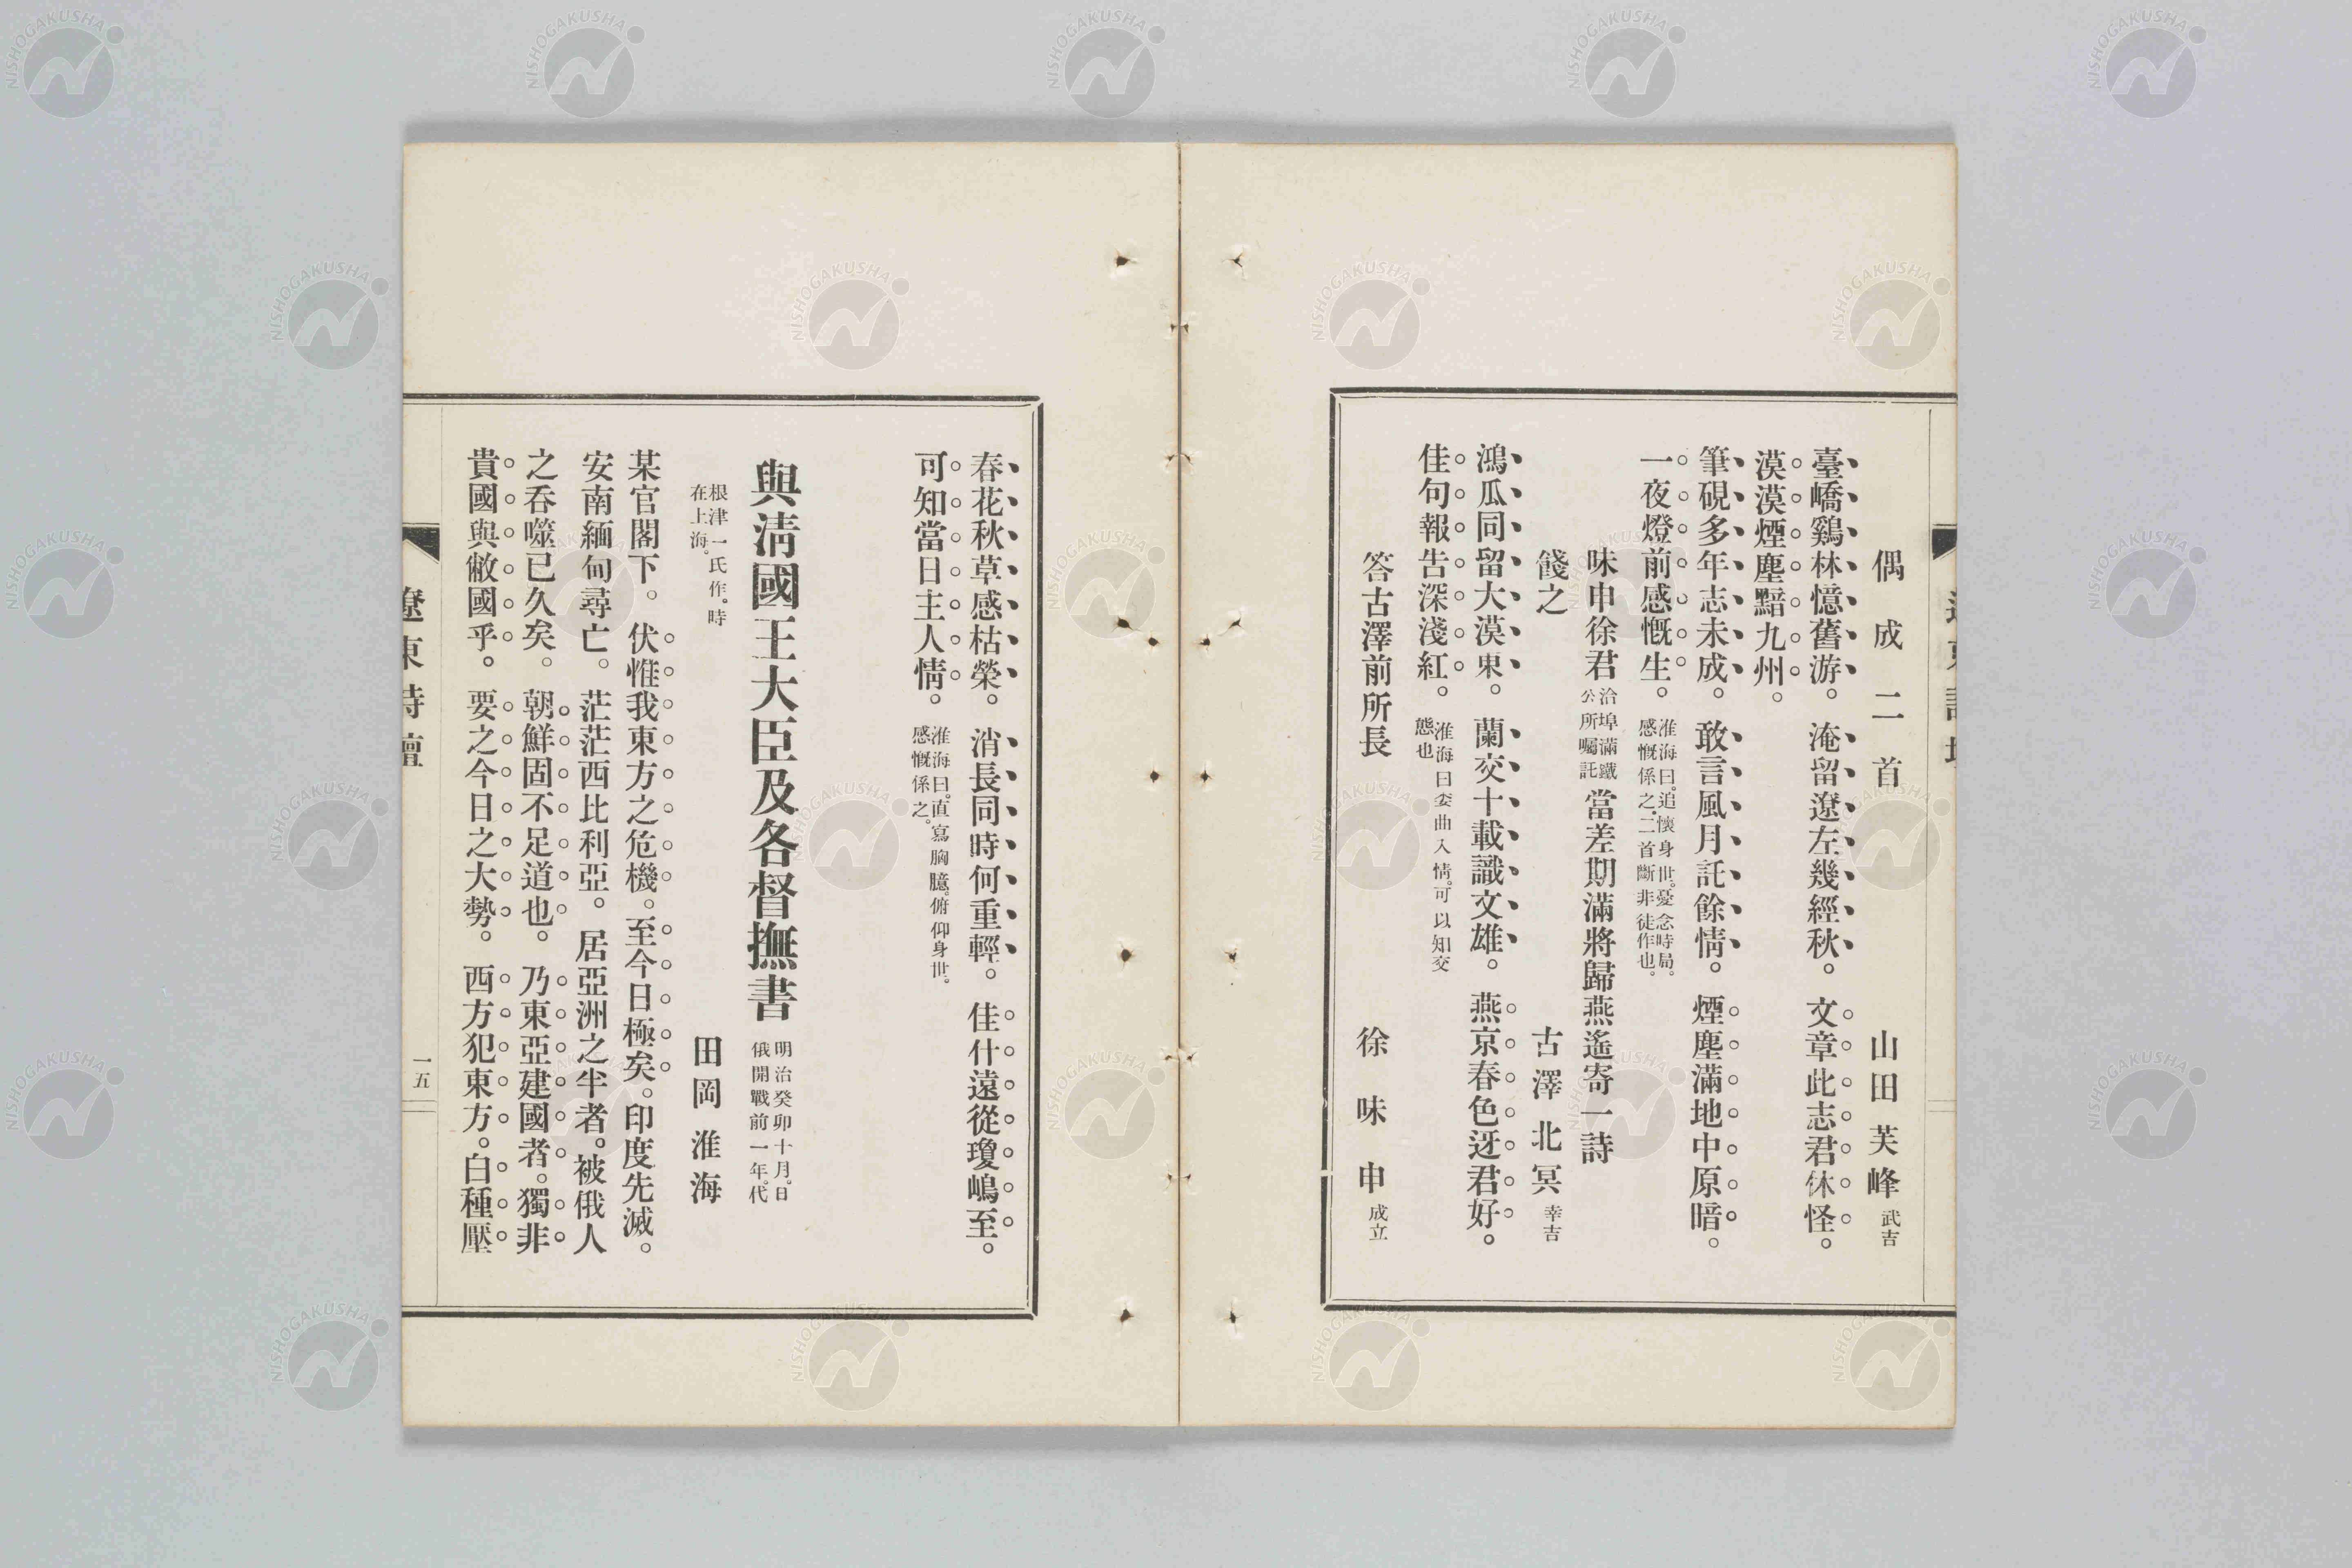 偶成二首　山田芙峰 武吉
臺嶠鷄林憶舊游。淹留遼左幾經秋。文章此志君休怪。
漠漠煙塵黯九州。
筆硯多年志未成。敢言風月託餘情。煙塵滿地中原暗。
一夜燈前感慨生。淮海曰。追懷身世。憂念時局。感慨係之。二首斷非徒作也。
味申徐君 洽埠滿鐵公所囑託 當差期滿將歸燕遙寄一詩
餞之　古澤北冥 幸吉
鴻瓜同留大漠東。蘭交十載識文雄。燕京春色迓君好。
佳句報告深淺紅。淮海曰委曲入情。可以知交態也
答古澤前所長　徐味申 成立
春花秋草感枯榮。消長同時何重輕。佳什遠從瓊嶋至。
可知當日主人情。淮海曰。直寫胸臆。俯仰身世。感慨係之。
與淸國王大臣及各督撫書 明治癸卯十月。日俄開戰前一年。代
根津一氏作。時在上海。　田岡淮海
某官閣下。伏惟我東方之危機。至今日極矣。印度先滅。
安南緬甸尋亡。茫茫西比利亞。居亞洲之半者。被俄人
之呑噬已久矣。朝鮮固不足道也。乃東亞建國者。獨非
貴國與敝國乎。要之今日之大勢。西方犯東方。白種壓
遼東詩壇
一五
NISHOGAKUSHA